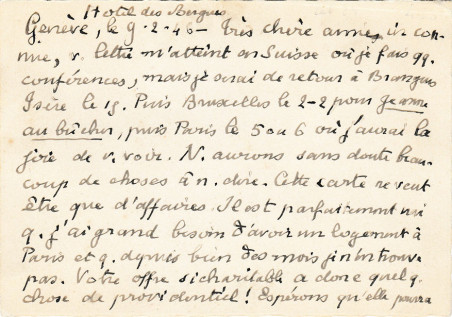 Hotel des Bergues
Genève, le 9-2-46 - Très chère amie in con-
nue, v. lettre m'atteint en Suisse où je fais qq.
conférences, mais je serai de retour à Brangues
Isère le 15. Puis Bruxelles le 2-2 pour Jeanne
au bûcher, puis Paris le 5 ou 6 où j'aurai la
joie de v. voir. N. aurons sans doute beau-
coup de choses à n. dire. Cette carte ne veut
être que d'affaires. Il est parfaitement vrai
q. j'ai grand besoin d'avoir un logement à
Paris et q. depuis bien des mois je n'en trouve
pas. Votre offre si charitable a donc quelq.
chose de providentiel ! Espérons qu'elle pourra